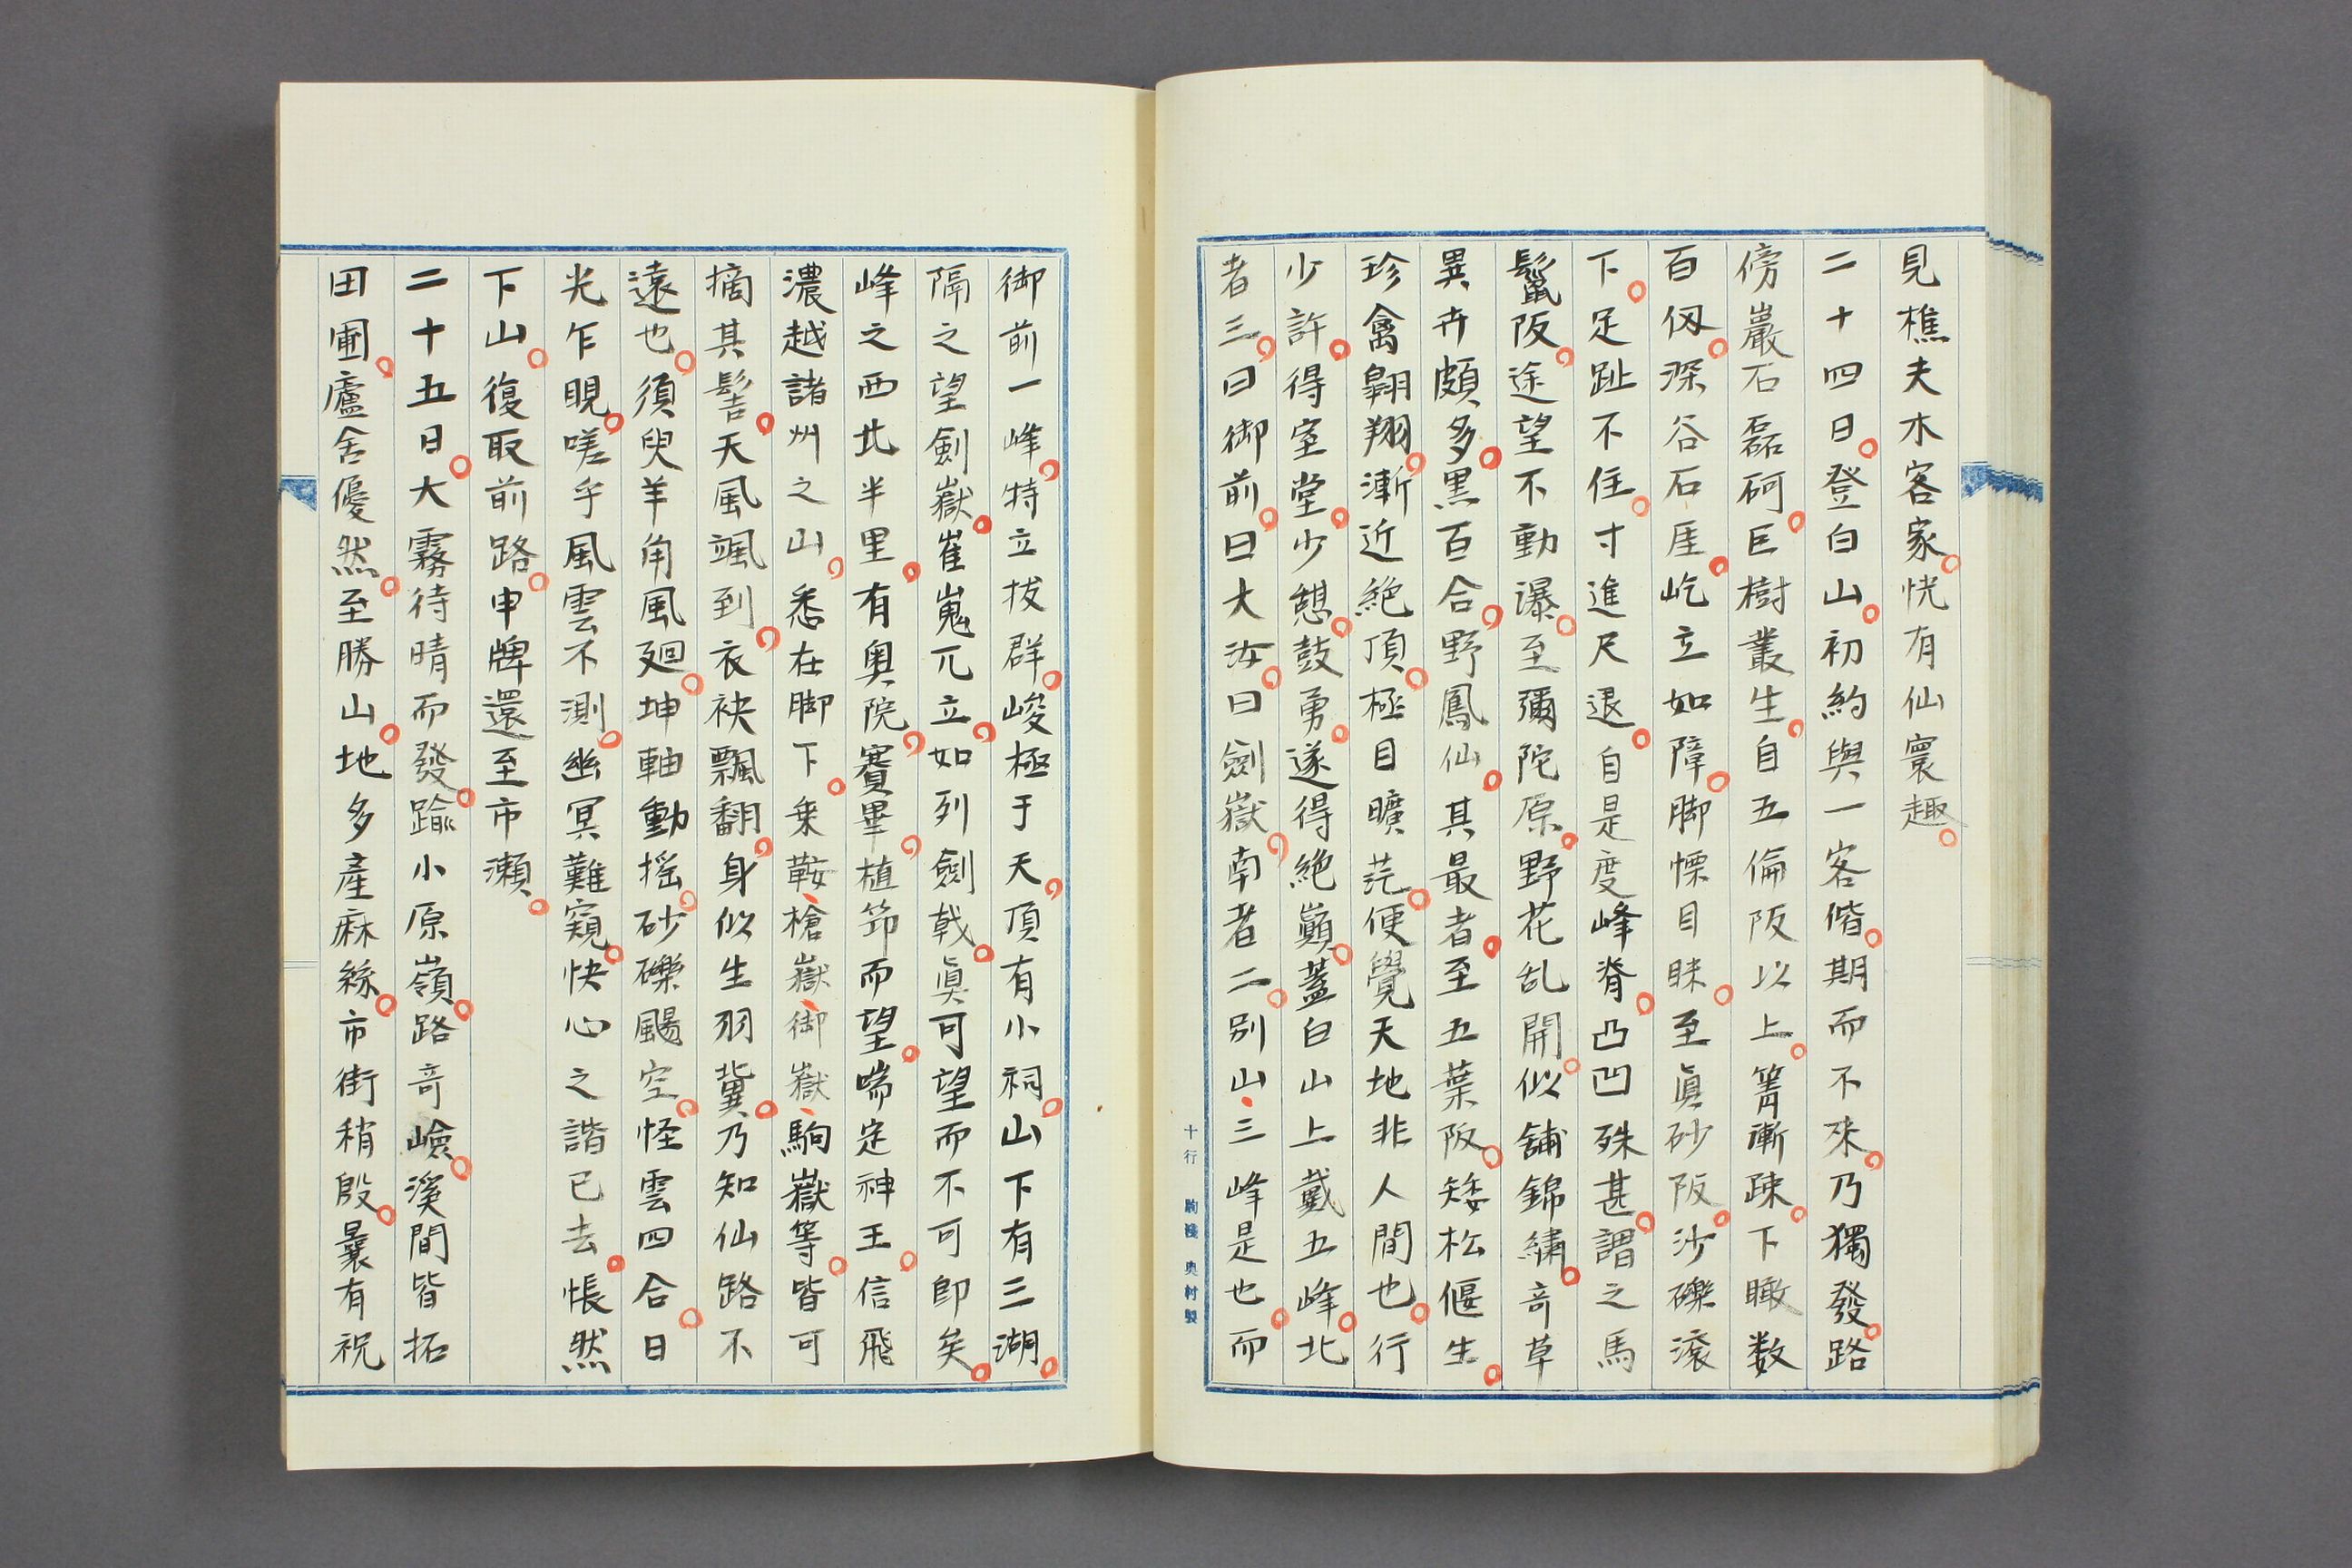 見樵夫木客家。恍有仙寰趣。
二十四日。登白山。初約與一客偕。期而不來。乃獨發。路
傍巖石磊砢。巨樹叢生。自五倫阪以上。箐漸疎。下瞰数
百仭。深谷石厓。屹立如障。脚慄目眯。至眞砂阪。沙礫滾
下。足趾不住。寸進尺退。自是度峰脊。凸凹殊甚。謂之馬
鬣阪。途望不動瀑。至彌陀原。野花乱開。似舖錦繡。竒草
異卉頗多。黒百合。野鳳仙。其最者。至五葉阪。矮松偃生。
珍禽翺翔。漸近絶頂。極目曠茫。便覺天地非人間也。行
少許。得室堂。少憩。鼓勇。遂得絶巓。蓋白山上戴五峰。北
者三。曰御前。曰大汝。曰劍嶽。南者二。別山、三峰是也。而
御前一峰。特立抜群。峻極于天。頂有小祠。山下有三湖。
隔之望劍嶽。崔嵬兀立。如列劍戟。眞可望而不可即矣。
峰之西北半里。有奥院。賽畢。植笻而望。喘定神王。信飛
濃越諸州之山。悉在脚下。乗鞍、槍嶽、御嶽、駒嶽等。皆可
摘其髻。天風颯到。衣袂飄翻。身似生羽冀。乃知仙路不
遠也。須臾羊角風廻。坤軸動揺。砂礫颺空。怪雲四合。日
光乍睍。嗟乎風雲不測。幽冥難窺。快心之諧已去。悵然
下山。復取前路。申牌還至市瀬。
二十五日。大霧待晴而發。踰小原嶺。路竒嶮。溪間皆拓
田圃。廬舎優然。至勝山。地多産麻絲。市街稍殷。曩有祝
十行 奥村製